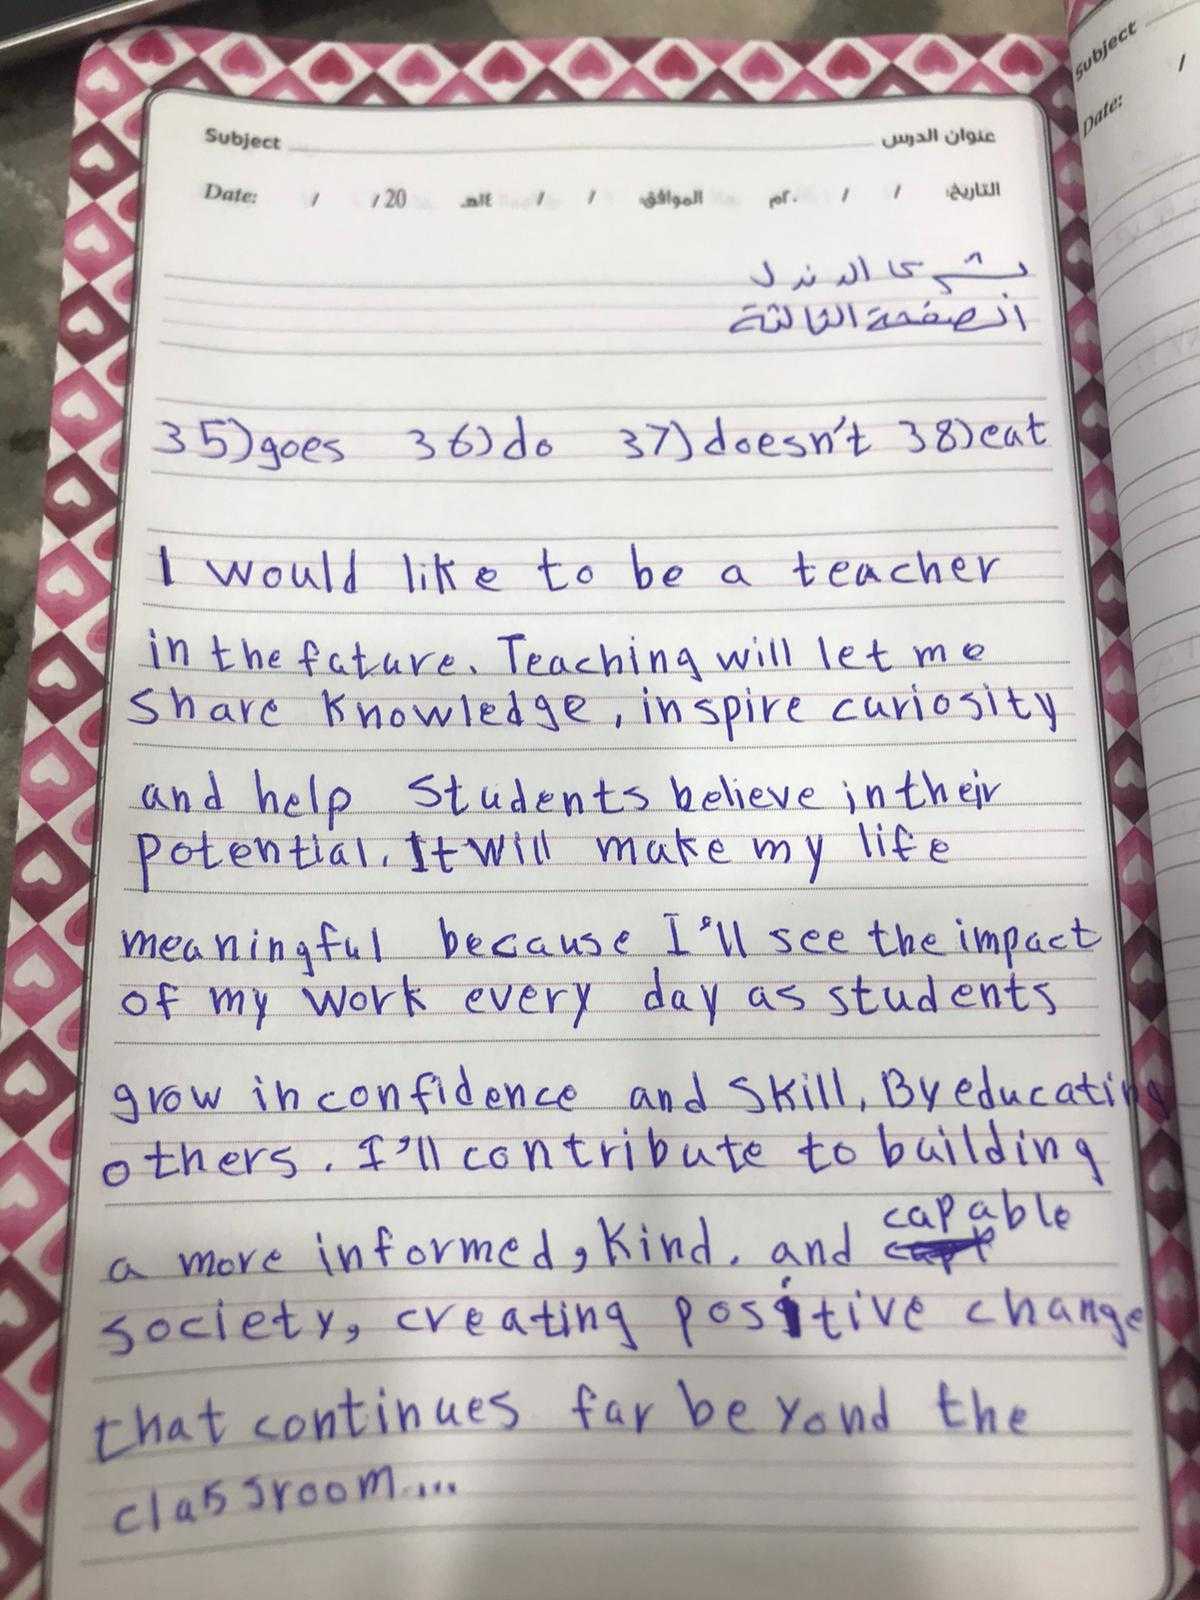 Subject عنوان الدرس
Date: / / 20 / / 14هـ الموافق / / 20م التاريخ:
بشرى الدندل
الصفحة الثالثة
35) goes 36) do 37) doesn't 38) eat
I would like to be a teacher
in the fature. Teaching will let me
share knowledge, inspire curiosity
and help students believe in their
potential. It will make my life
meaningful because I'll see the impact
of my work every day as students
grow in confidence and skill. By educating
others. I'll contribute to building
a more informed, kind. and capable
society, creating positive change
that continues far beyond the
classroom....
Subject
/
Date: